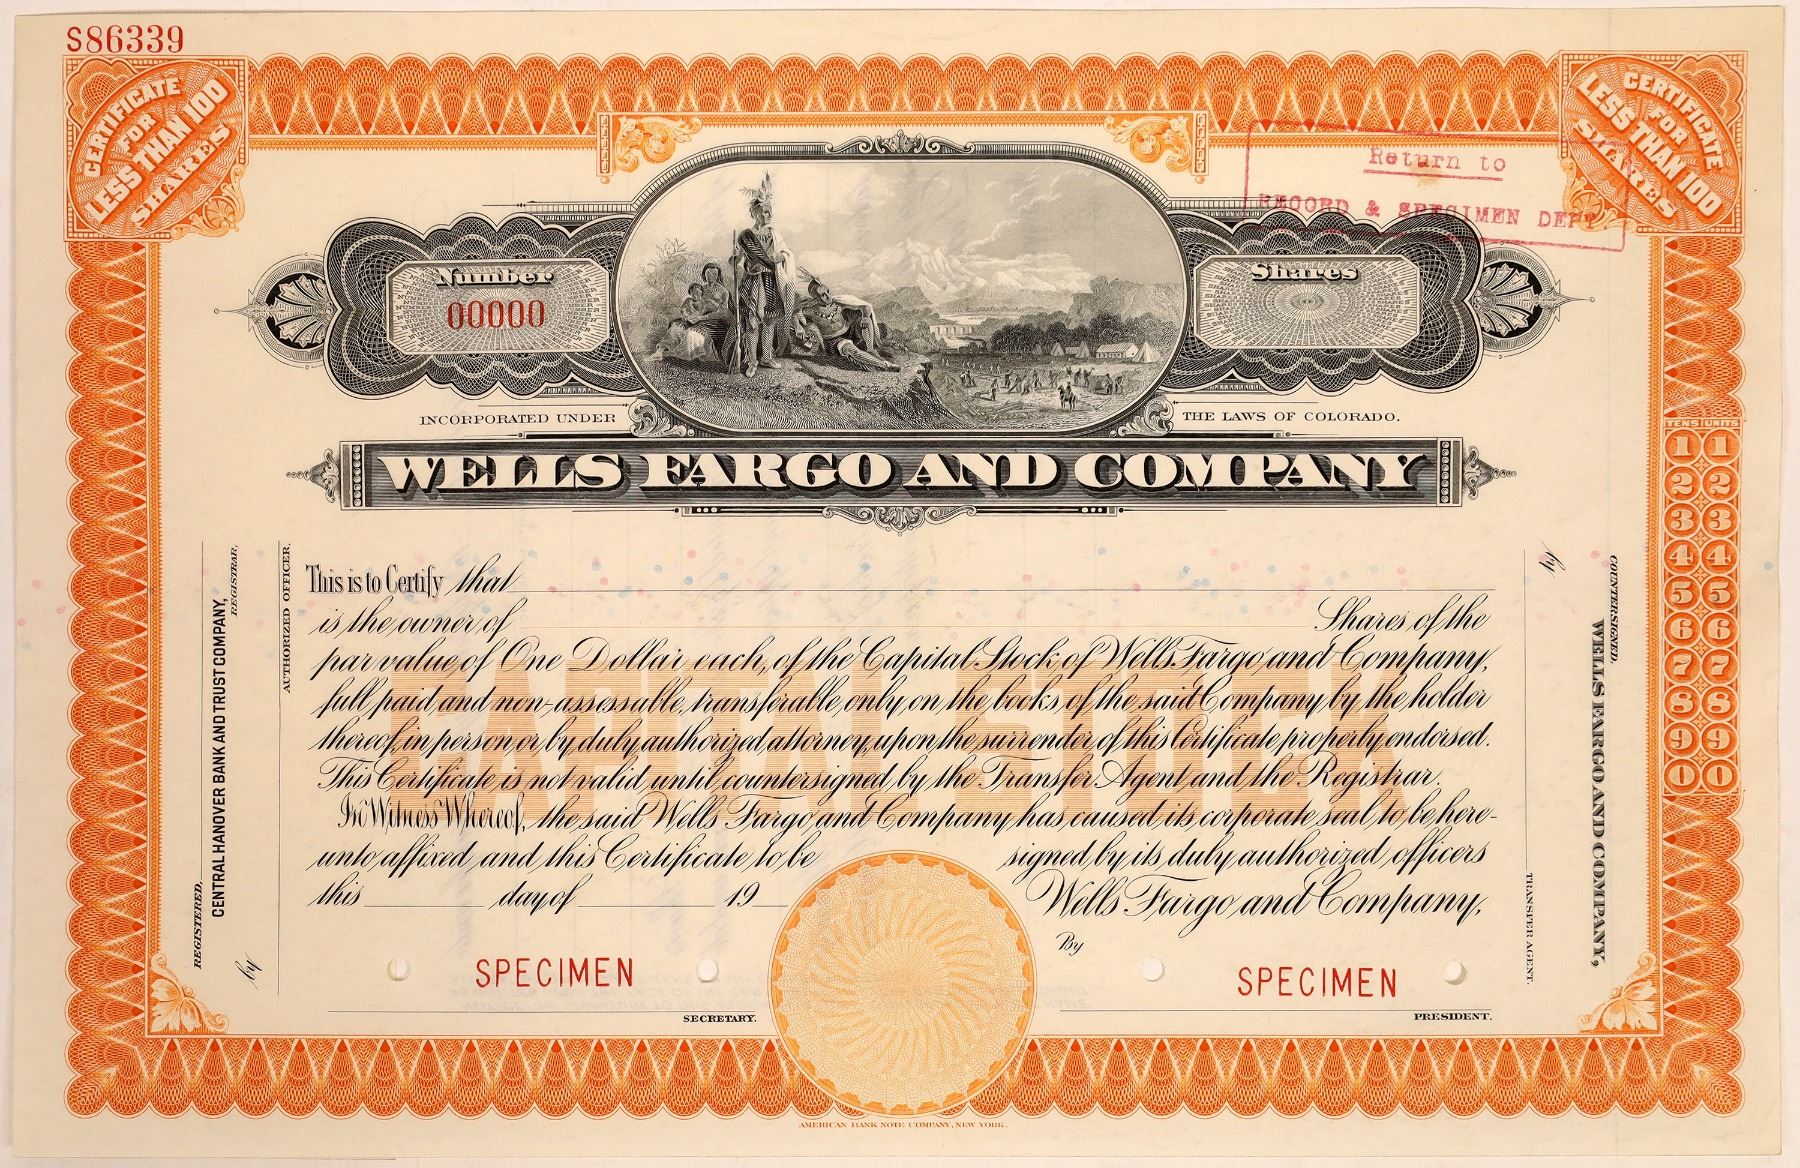 S86339
CERTIFICATE
FOR
LESS THAN 100
SHARES
CERTIFICATE
FOR
LESS THAN 100
SHARES
Return to
RECORD & SPECIMEN DEPT
Number
00000
Shares
INCORPORATED UNDER THE LAWS OF COLORADO.
WELLS FARGO AND COMPANY
TENS UNITS
1 1
2 2
3 3
4 4
5 5
6 6
7 7
8 8
9 9
0 0
REGISTERED,
CENTRAL HANOVER BANK AND TRUST COMPANY,
REGISTRAR,
by
AUTHORIZED OFFICER.
This is to Certify that
is the owner of Shares of the
par value of One Dollar each, of the Capital Stock of Wells Fargo and Company,
full paid and non-assessable, transferable only on the books of the said Company by the holder
thereof, in person or by duly authorized attorney, upon the surrender of this Certificate properly endorsed.
This Certificate is not valid until countersigned by the Transfer Agent and the Registrar.
In Witness Whereof, the said Wells Fargo and Company has caused its corporate seal to be here-
unto affixed and this Certificate to be signed by its duly authorized officers
this day of 19 Wells Fargo and Company,
CAPITAL STOCK
By
SPECIMEN
SPECIMEN
SECRETARY.
PRESIDENT.
COUNTERSIGNED,
WELLS FARGO AND COMPANY,
TRANSFER AGENT.
by
AMERICAN BANK NOTE COMPANY, NEW YORK.